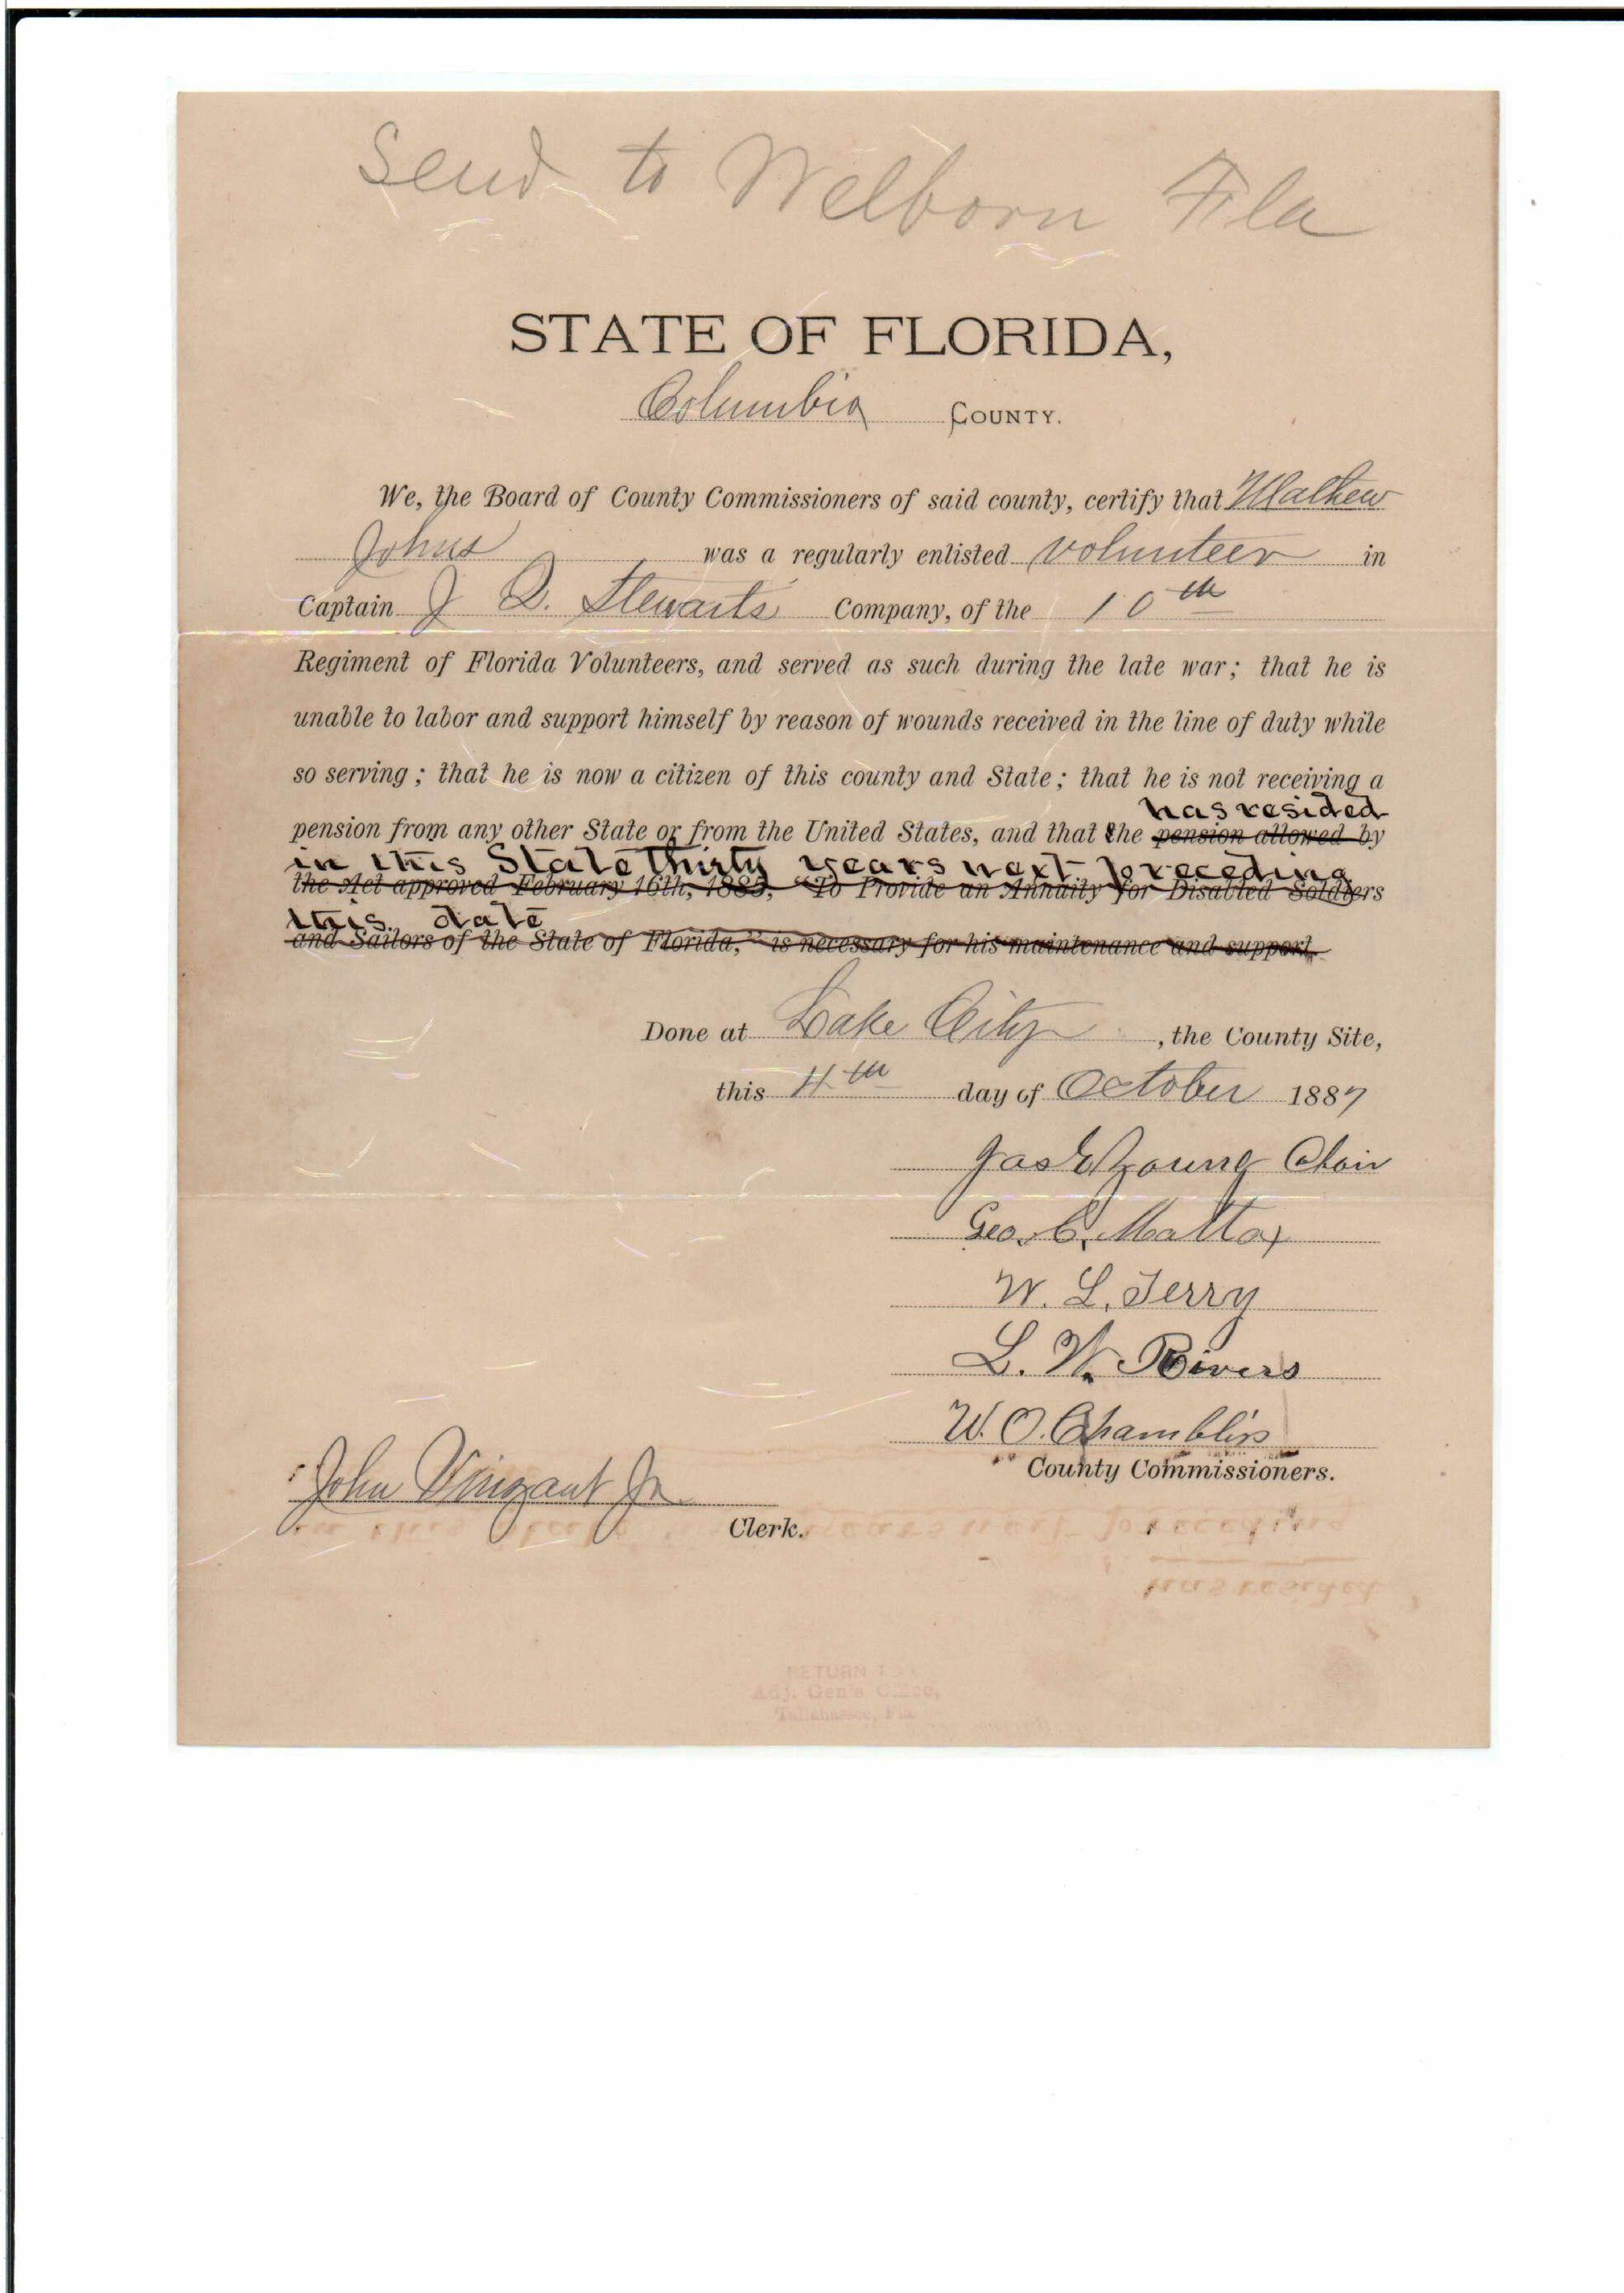 Send to Welborn Fla
STATE OF FLORIDA,
Columbia COUNTY.
We, the Board of County Commissioners of said county, certify that Mathew
Johns was a regularly enlisted volunteer in
Captain J Q. Stewarts Company, of the 10th
Regiment of Florida Volunteers, and served as such during the late war; that he is
unable to labor and support himself by reason of wounds received in the line of duty while
so serving; that he is now a citizen of this county and State; that he is not receiving a
has resided
pension from any other State or from the United States, and that the pension allowed by
in this State thirty years next preceding
the Act approved February 16th, 1885, "To Provide an Annuity for Disabled Soldiers
this date
and Sailors of the State of Florida," is necessary for his maintenance and support.
Done at Lake City, the County Site,
this 4th day of October 1887
Jas E Young Chair
Geo. C. Mattox
W. L. Terry
L. W. Rivers
W. O. Chambliss
County Commissioners.
John Vinzant Jr.
Clerk.
RETURN TO
Adj. Gen's Office,
Tallahassee, Fla